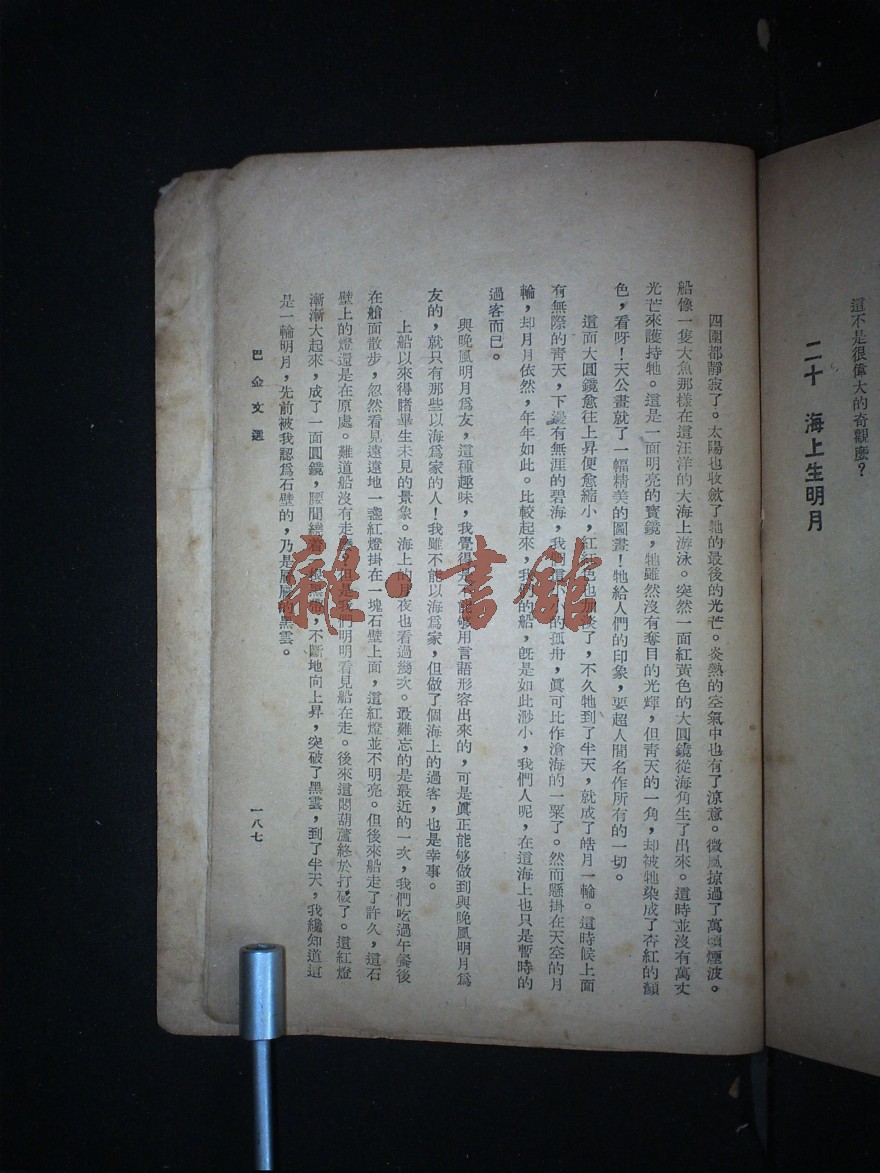 這不是很偉大的奇觀麼？
二十 海上生明月
四圍都靜寂了。太陽也收斂了牠的最後的光芒。炎熱的空氣中也有了涼意。微風掠過了萬頃煙波。
船像一隻大魚那樣在這汪洋的大海上游泳。突然一面紅黃色的大圓鏡從海角生了出來。這時並沒有萬丈
光芒來護持牠。這是一面明亮的寶鏡，牠雖然沒有奪目的光輝，但青天的一角，却被牠染成了杏紅的顏
色，看呀！天公畫就了一幅精美的圖畫！牠給人們的印象，要超人間名作所有的一切。
這面大圓鏡愈往上昇便愈縮小，紅紅色也了，不久牠到了半天，就成了皓月一輪。這時候上面
有無際的青天，下邊有無涯的碧海，我們的孤舟，眞可比作滄海的一粟了。然而懸掛在天空的月
輪，却月月依然，年年如此。比較起來，我們的船，旣是如此渺小，我們人呢，在這海上也只是暫時的
過客而已。
與晚風明月爲友，這種趣味，我覺得能够用言語形容出來的，可是眞正能够做到與晚風明月爲
友的，就只有那些以海爲家的人！我雖不能以海爲家，但做了個海上的過客，也是幸事。
上船以來得睹畢生未見的景象。海上的月夜也看過幾次。最難忘的是最近的一次，我們吃過午餐後
在艙面散步，忽然看見遠遠地一盞紅燈掛在一塊石壁上面，這紅燈並不明亮。但後來船走了許久，這石
壁上的燈還是在原處。難道船沒有走？但是我們明明看見船在走。後來這悶葫蘆終於打破了。這紅燈
漸漸大起來，成了一面圓鏡，腰間繞着一根黑，不斷地向上昇，突破了黑雲，到了半天，我纔知道這
是一輪明月，先前被我認爲石壁的，乃是層層的黑雲。
巴金文選
一八七
雜·書館